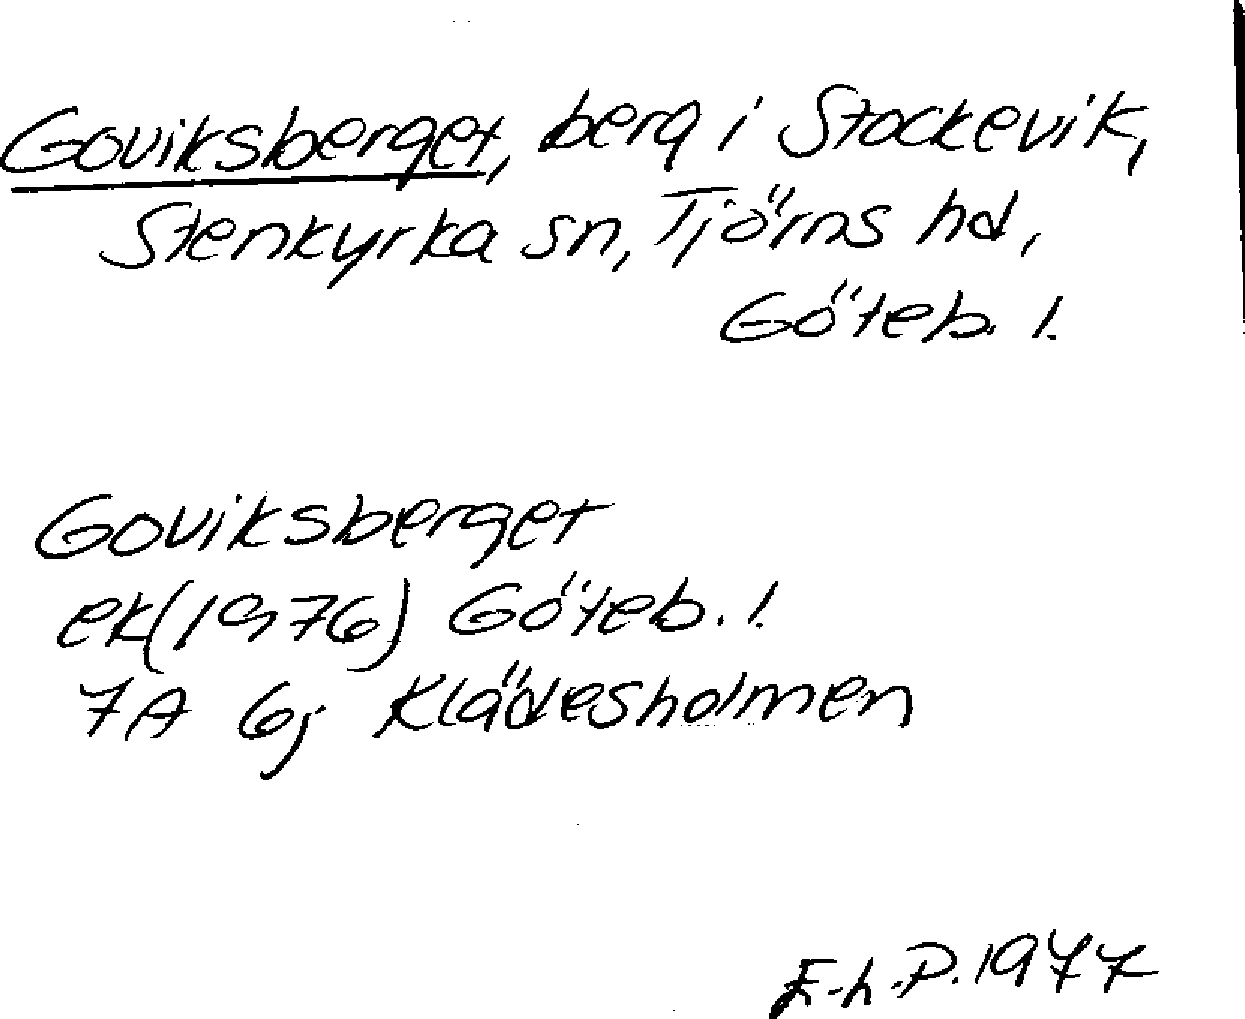 Goviksberget, berg i Stockevik,
Stenkyrka sn, Tjörns hd,
Göteb. l.
Goviksberget
ek(1976) Göteb. l.
7A 6j Klädesholmen
E-h-P. 1977